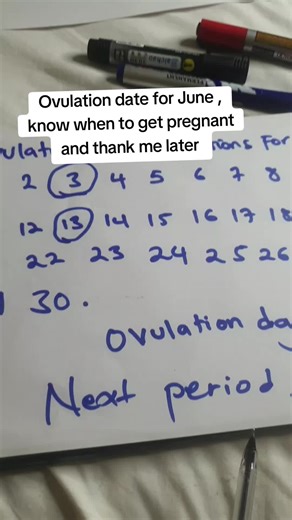 Ovulation date for June ,
know when to get pregnant
and thank me later
For
2 3 4 5 6 7 8
12 13 14 15 16 17 18
22 23 24 25 26
30.
Ovulation day
Next period